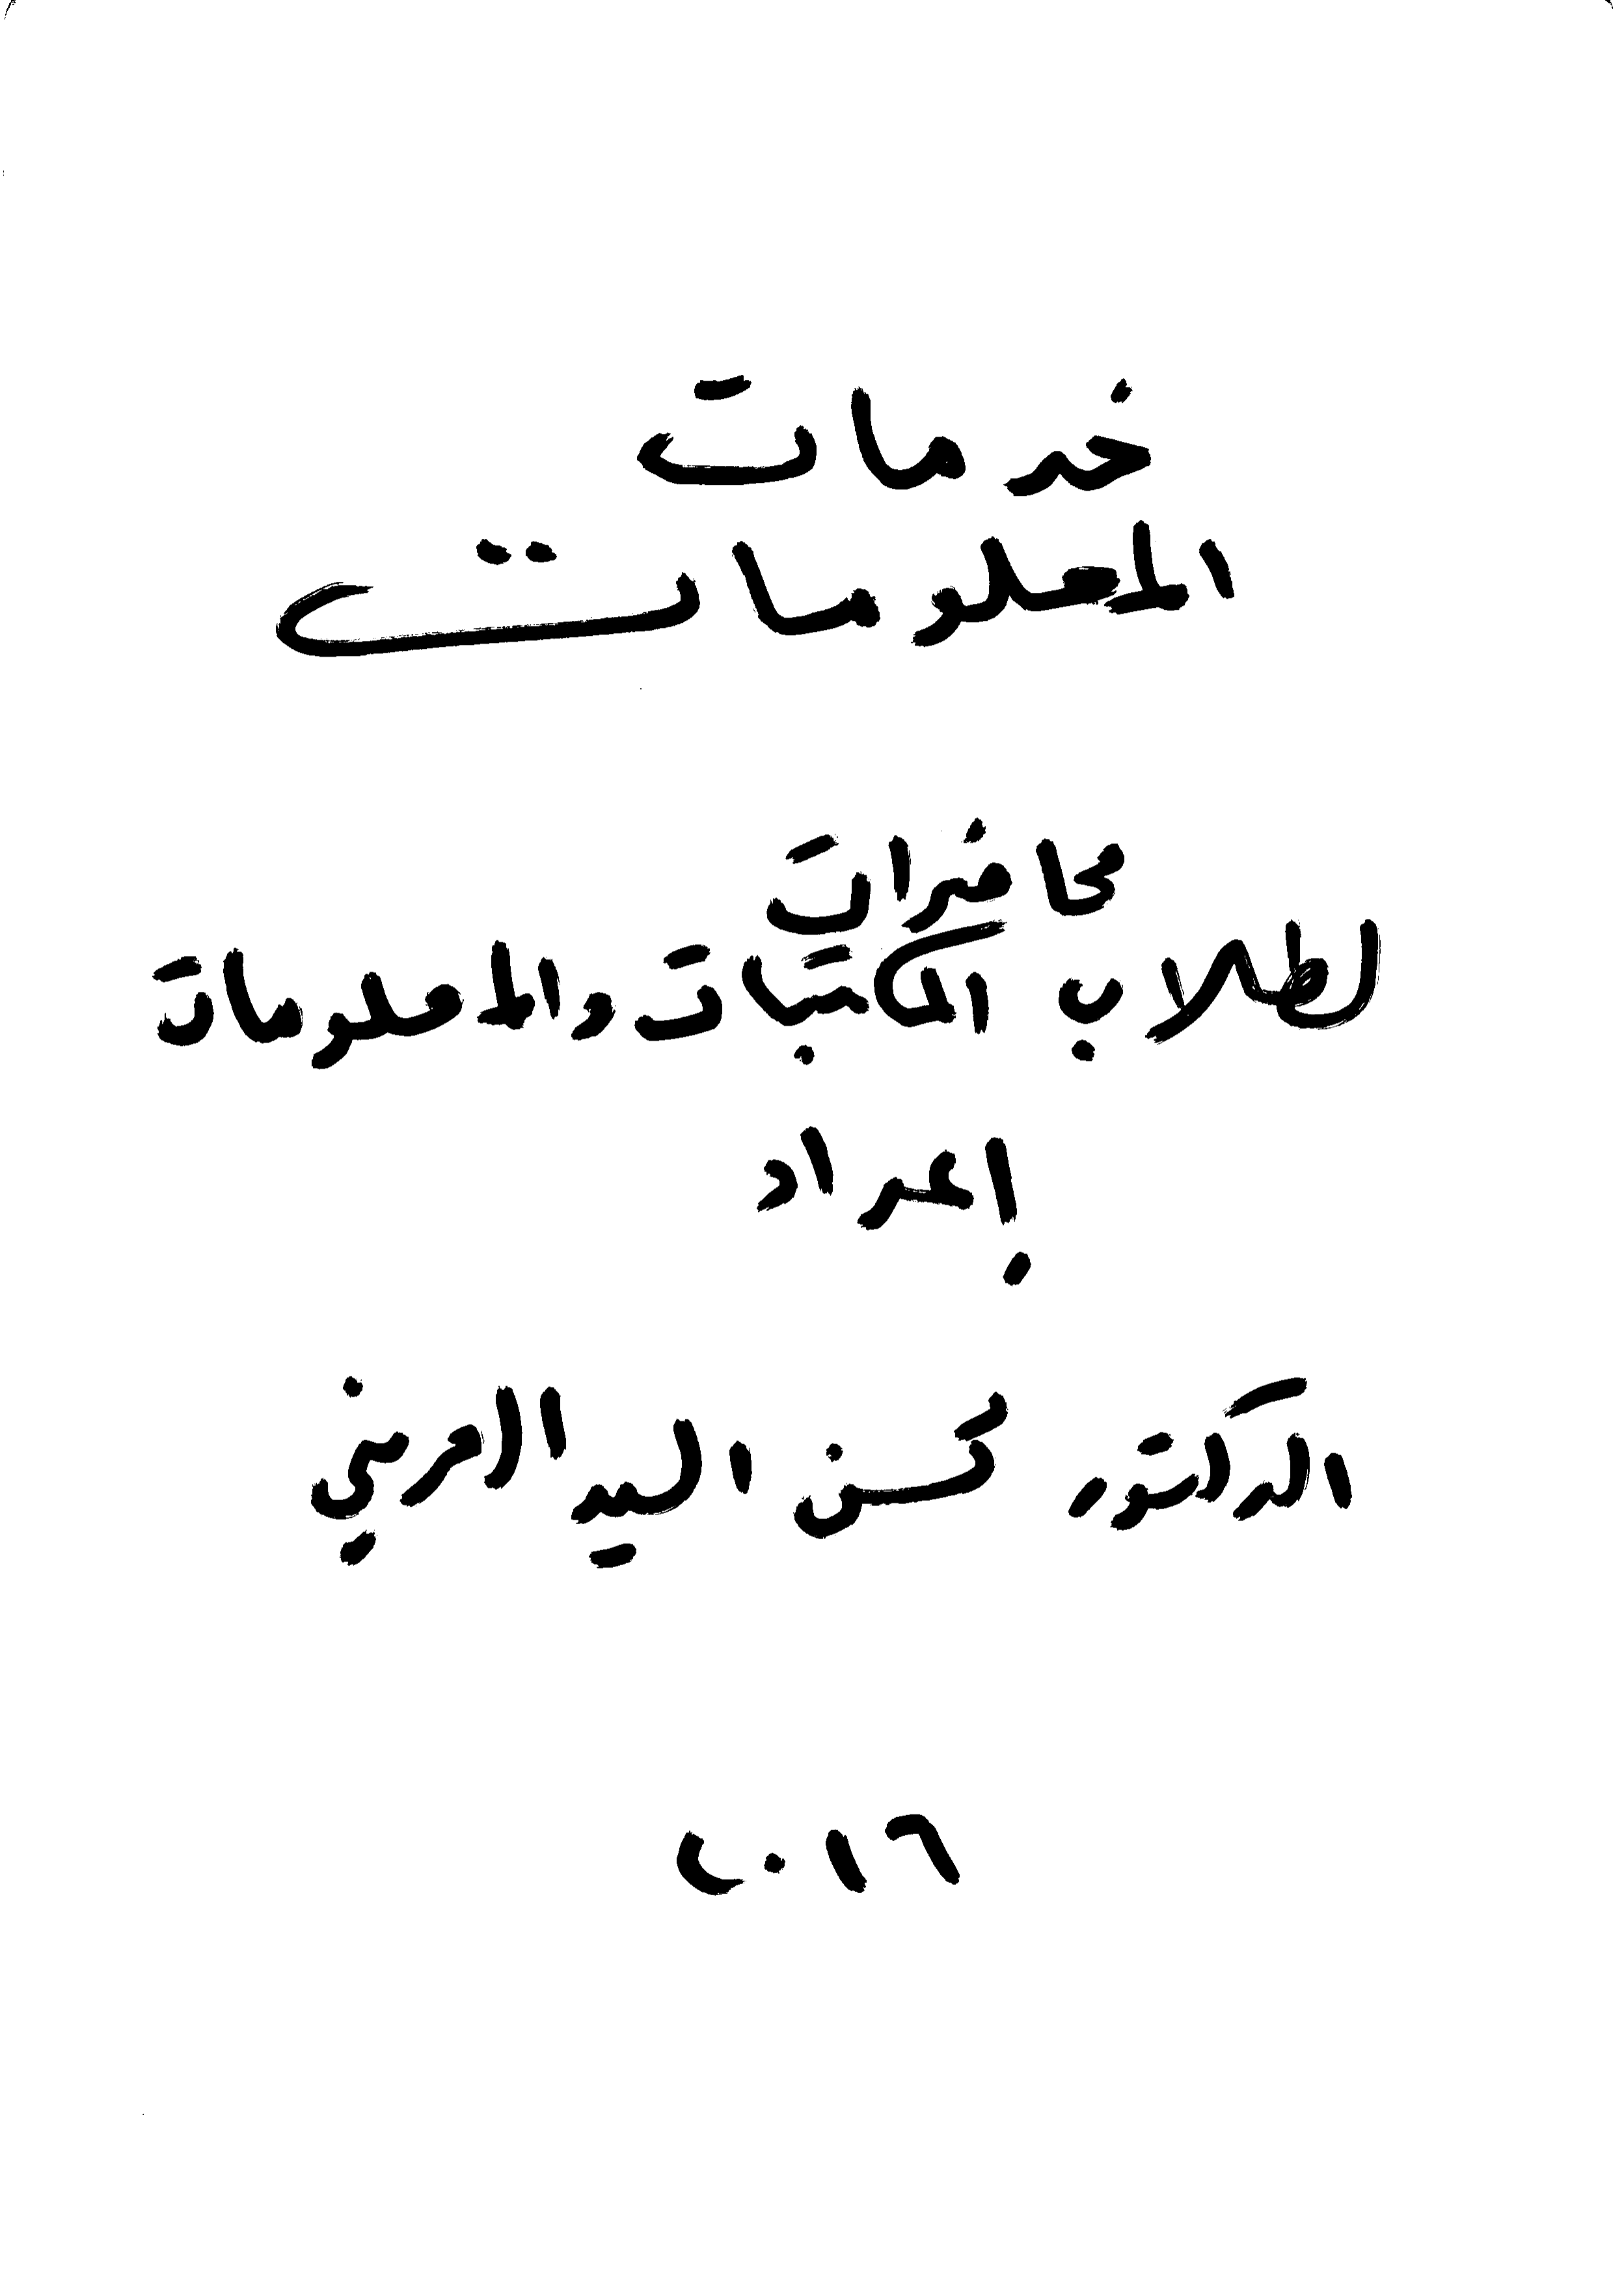 خدمات
المعلومات
محاضرات
لطلاب المكتبات والمعلومات
إعداد
الدكتور محسن السيد العريني
٢٠١٦